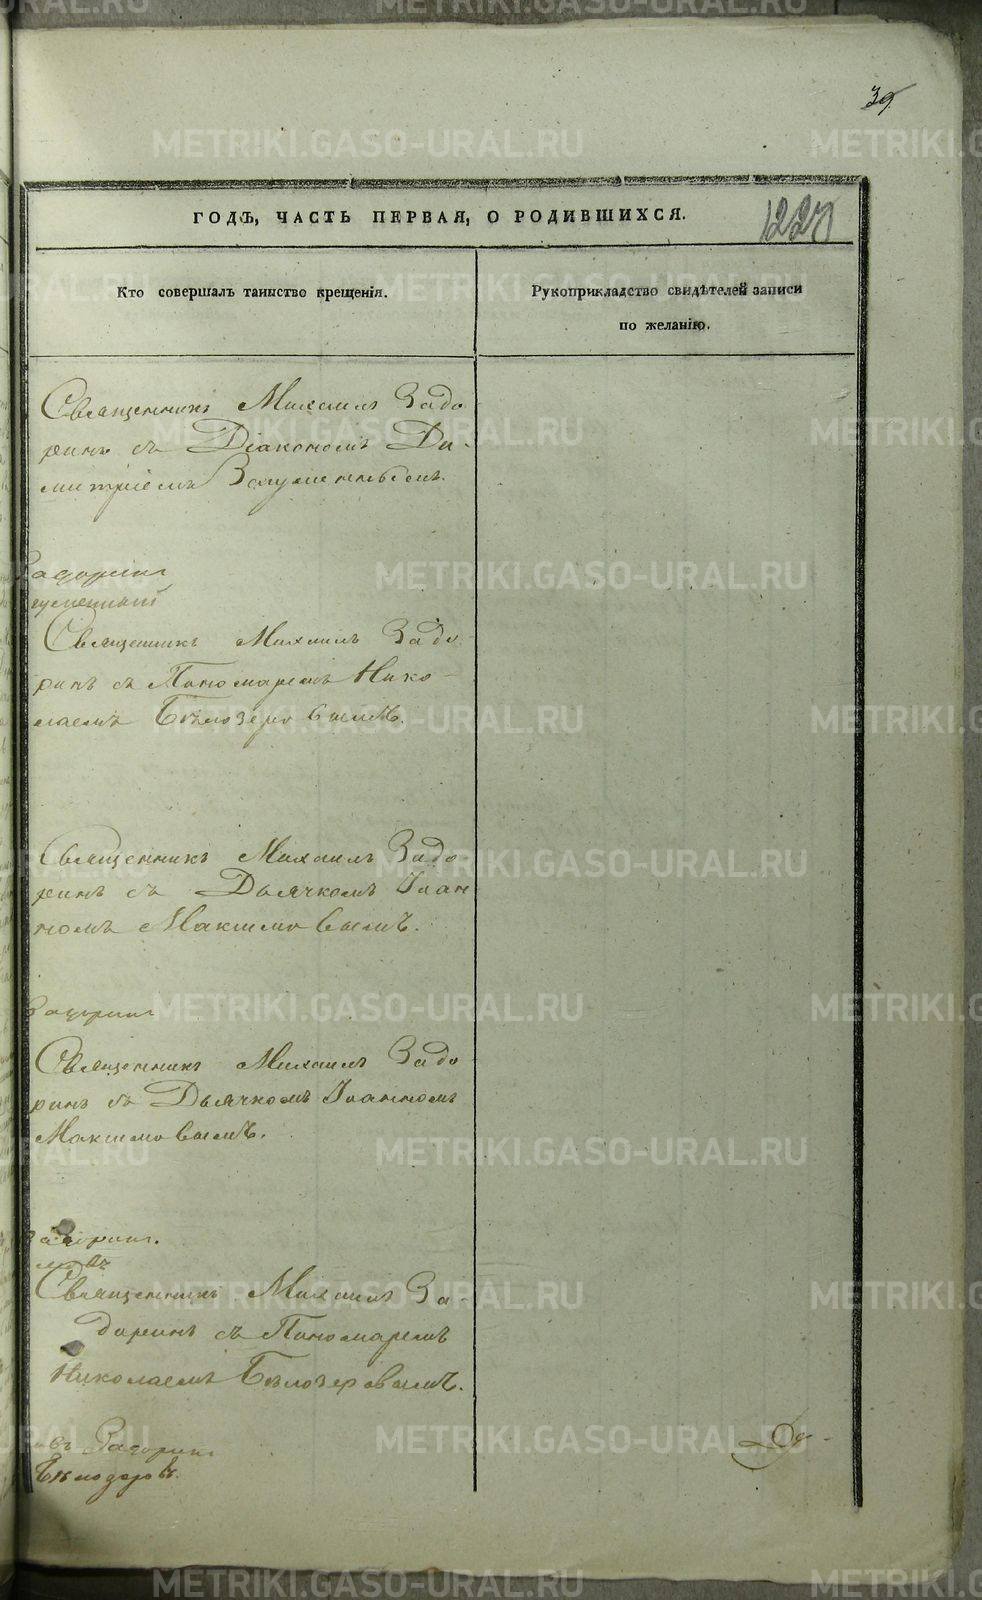 39
ГОДЪ, ЧАСТЬ ПЕРВАЯ, О РОДИВШИХСЯ.
122
Кто совершалъ таинство крещенія.
Рукоприкладство свидѣтелей записи
по желанію.
Священникъ Михаилъ Задо
ринъ съ Діакономъ Ди-
митріемъ
Задоринъ
Священникъ Михаилъ Задо
ринъ съ Пономаремъ Нико-
лаемъ Бѣлозеровымъ.
Священникъ Михаилъ Задо-
ринъ съ Дьячкомъ Іоан
номъ Максимовымъ.
Задоринъ
Священникъ Михаилъ Задо
ринъ съ Дьячкомъ Іоанномъ
Максимовымъ.
Задоринъ.
Священникъ Михаилъ За-
доринъ съ Пономаремъ
Николаемъ Бѣлозеровымъ.
Задоринъ
Бѣлозеровъ.
METRIKI.GASO-URAL.RU